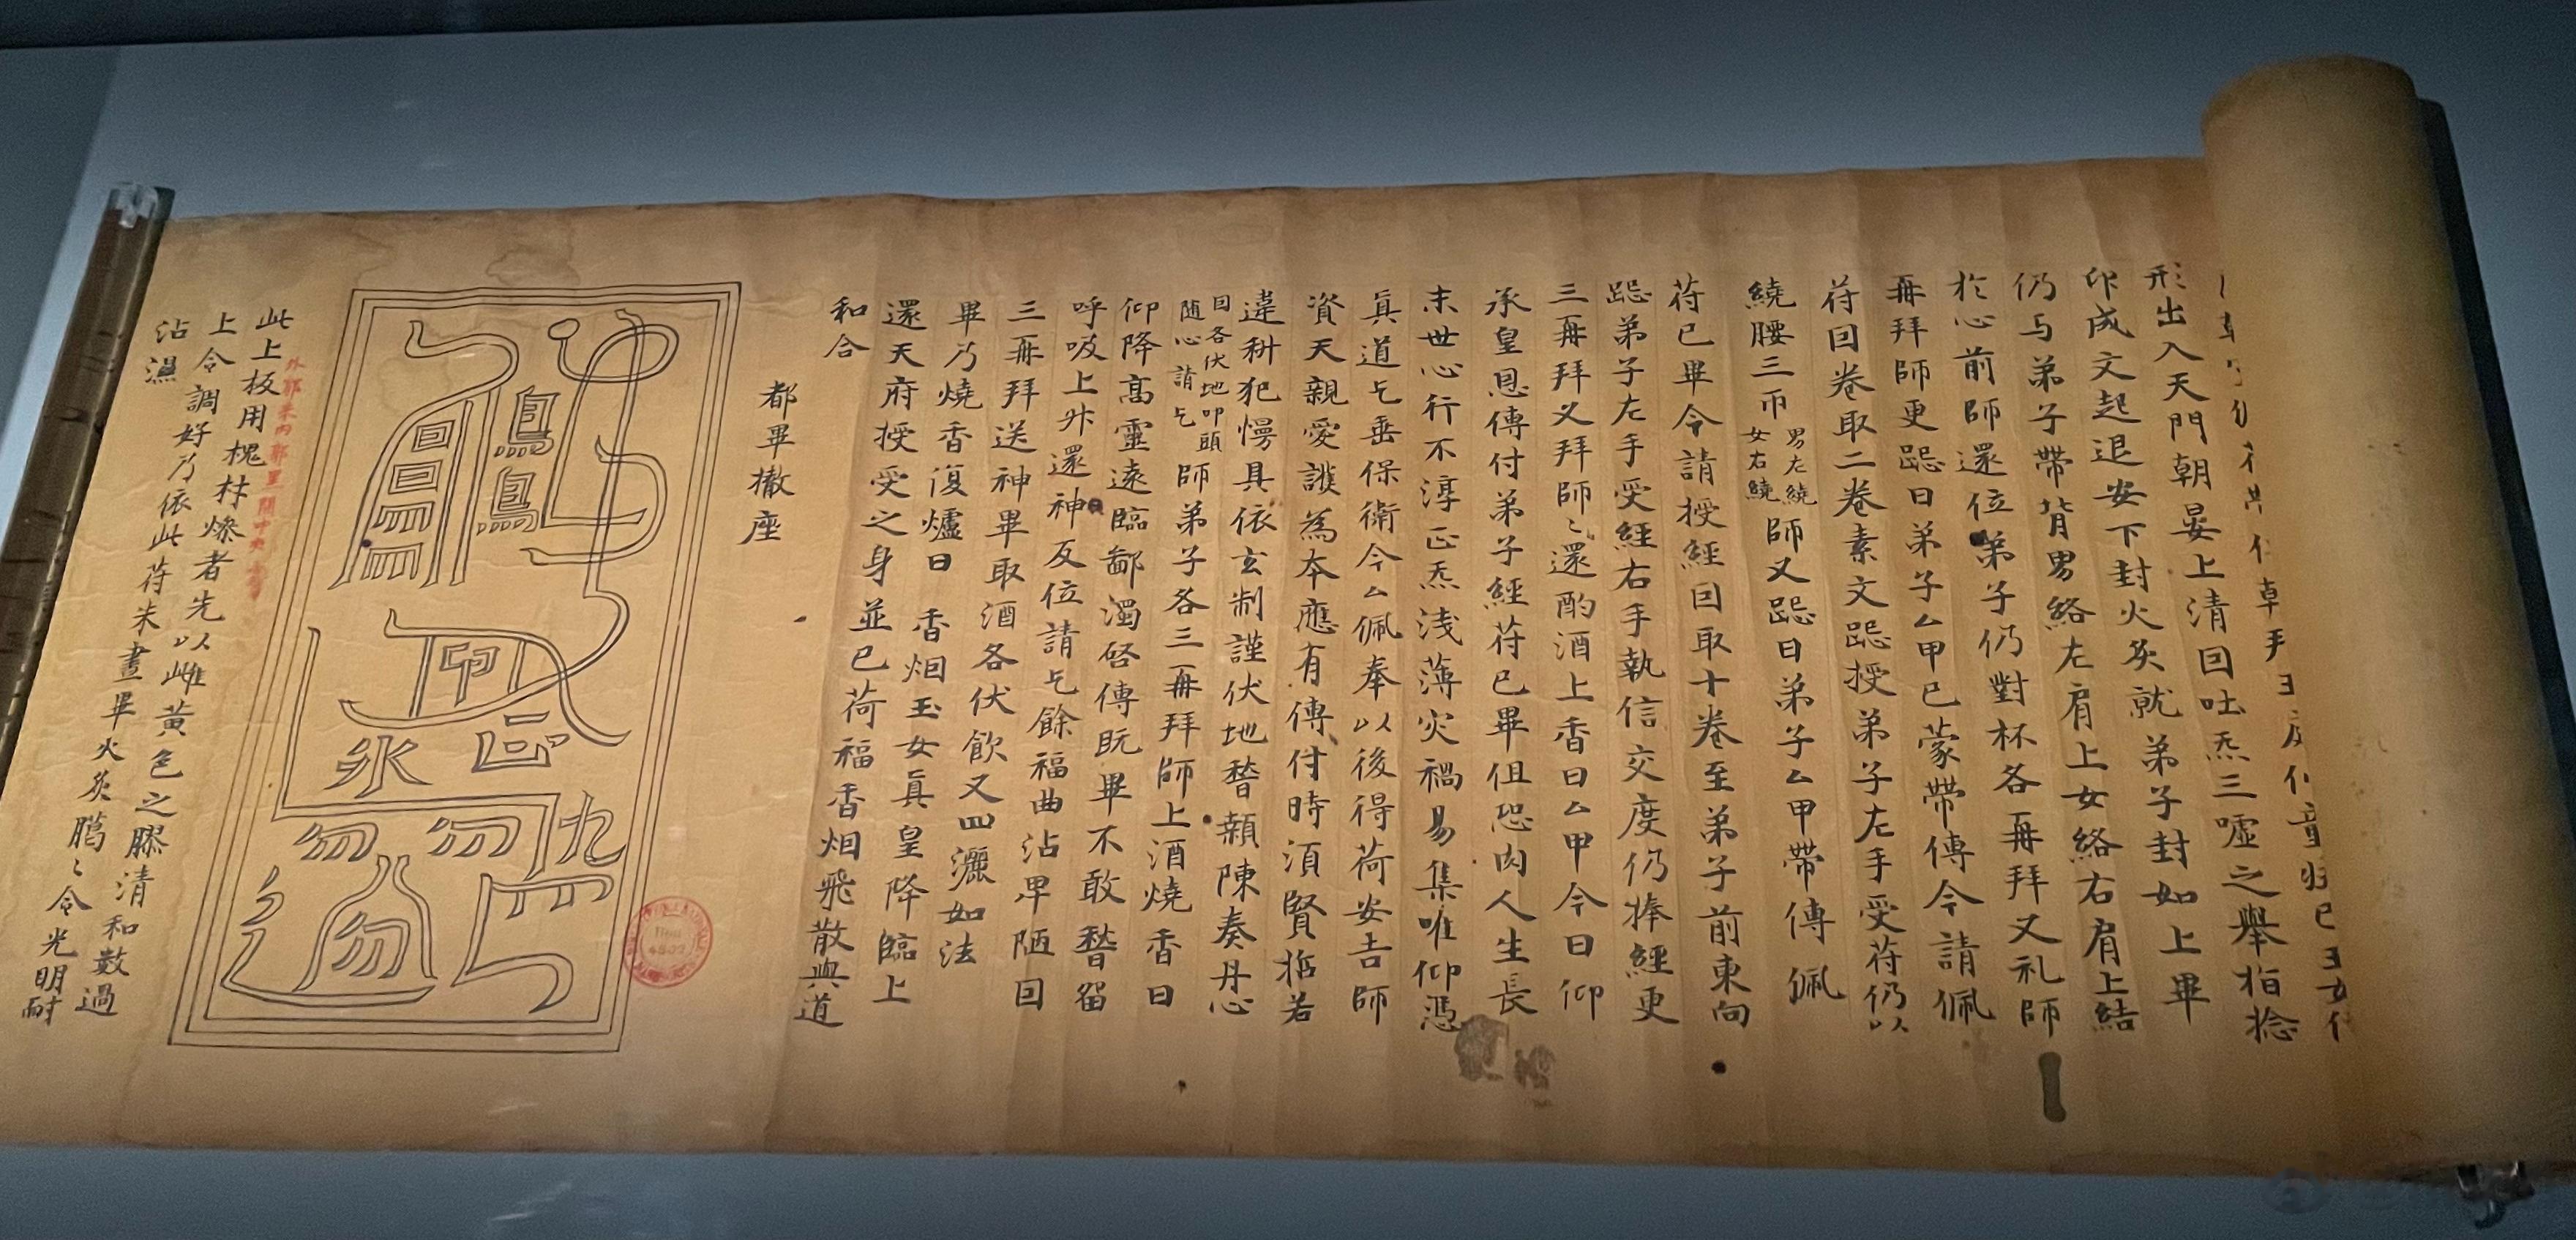 形出入天門朝晏上清回吐炁三噓之舉指捻
印成文起退安下封火炙就弟子封如上畢
仍与弟子帶背男絡左肩上女絡右肩上結
於心前師還位弟子仍對杯各再拜又礼師
再拜師更跽曰弟子厶甲已蒙帶傳今請佩
苻回卷取二卷素文跽授弟子左手受苻仍以
繞腰三帀男左繞女右繞師又跽曰弟子厶甲帶傳佩
苻已畢令請授經回取十卷至弟子前東向
跽弟子左手受經右手執信交度仍捧經更
三再拜又拜師〻還酌酒上香曰厶甲今日仰
承皇恩傳付弟子經苻已畢但恐肉人生長
末世心行不淳正炁淺薄灾禍易集唯仰憑
真道乞垂保衛今厶佩奉以後得荷安吉師
資天親愛護為本應有傳付時須賢哲若
違科犯慢具依玄制謹伏地稽顙陳奏丹心
回各伏地叩頭随心請乞師弟子各三再拜師上酒燒香曰
仰降高靈遠臨鄙濁啓傳既畢不敢稽留
呼吸上升還神反位請乞餘福曲沾卑陋回
三再拜送神畢取酒各伏飲又四灑如法
畢乃燒香復爐曰 香烟玉女真皇降臨上
還天府授受之身並已荷福香烟飛散與道
和合
都畢撤座
外郭朱内郭里間中央
此上板用槐材燥者先以雌黃色之膠清和數過
上令調好乃依此苻朱畫畢火炙臈〻令光明耐
沾濕